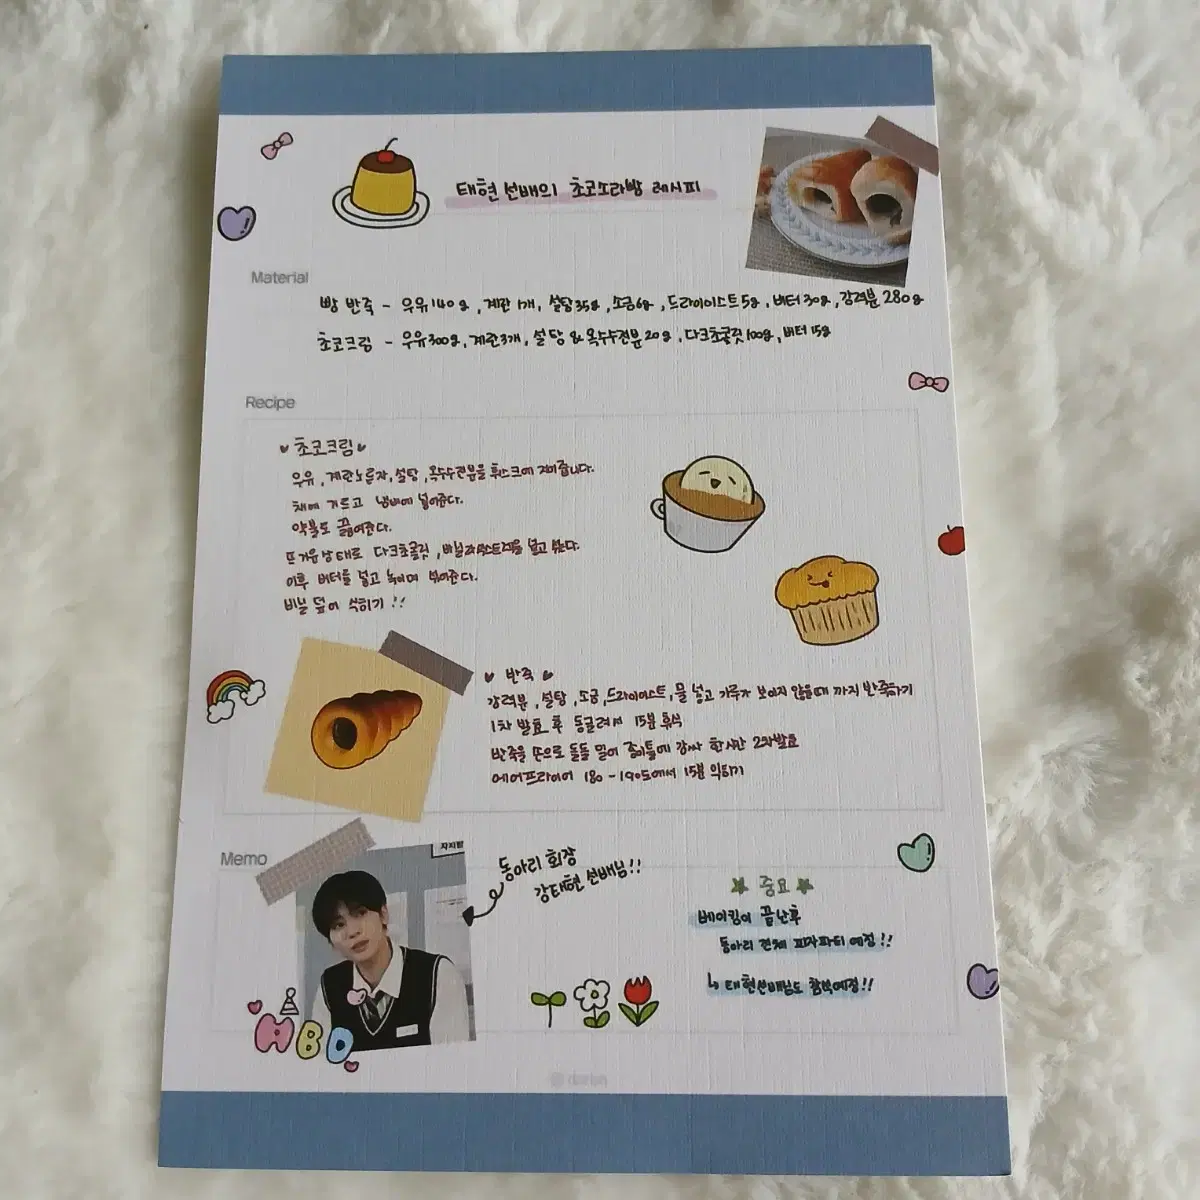 태현 선배의 초코소라빵 레시피
Material
빵 반죽 - 우유 140g, 계란 1개, 설탕 35g, 소금 6g, 드라이이스트 5g, 버터 30g, 강력분 280g
초코크림 - 우유 300g, 계란 3개, 설탕 & 옥수수전분 20g, 다크초콜릿 100g, 버터 15g
Recipe
초코크림
우유, 계란노른자, 설탕, 옥수수전분을 휘스크에 저어줍니다.
채에 거르고 냄비에 넣어준다.
약불로 끓여준다.
뜨거운 상태로 다크초콜릿, 바닐라익스트랙을 넣고 섞는다.
이후 버터를 넣고 녹이며 섞어준다.
비닐 덮어 식히기 !!
반죽
강력분, 설탕, 소금, 드라이이스트, 물 넣고 가루가 보이지 않을때 까지 반죽하기
1차 발효 후 동글려서 15분 휴식
반죽을 손으로 돌돌 밀어 종이틀에 감싸 한시간 2차발효
에어프라이어 180-190도에서 15분 익히기
Memo
동아리 회장
강태현 선배님!!
중요
베이킹이 끝난후
동아리 전체 피자파티 예정!!
↳ 태현선배님도 참석예정!!
HBD